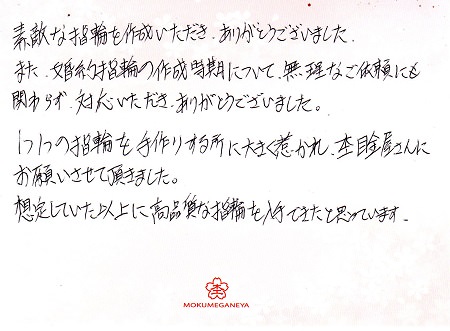 素敵な指輪を作成いただき、ありがとうございました。
また、婚約指輪の作成時期について、無理なご依頼にも
関わらず、対応いただき、ありがとうございました。
1つ1つの指輪を手作りする所に大きく惹かれ、杢目金屋さんに
お願いさせて頂きました。
想定していた以上に高品質な指輪を入手できたと思っています。
MOKUMEGANEYA